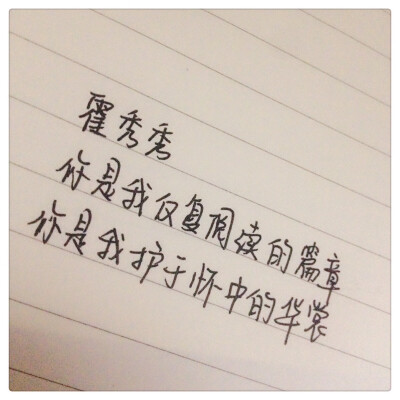 霍秀秀
你是我仅复阅读的篇章
你是我护于怀中的华裳